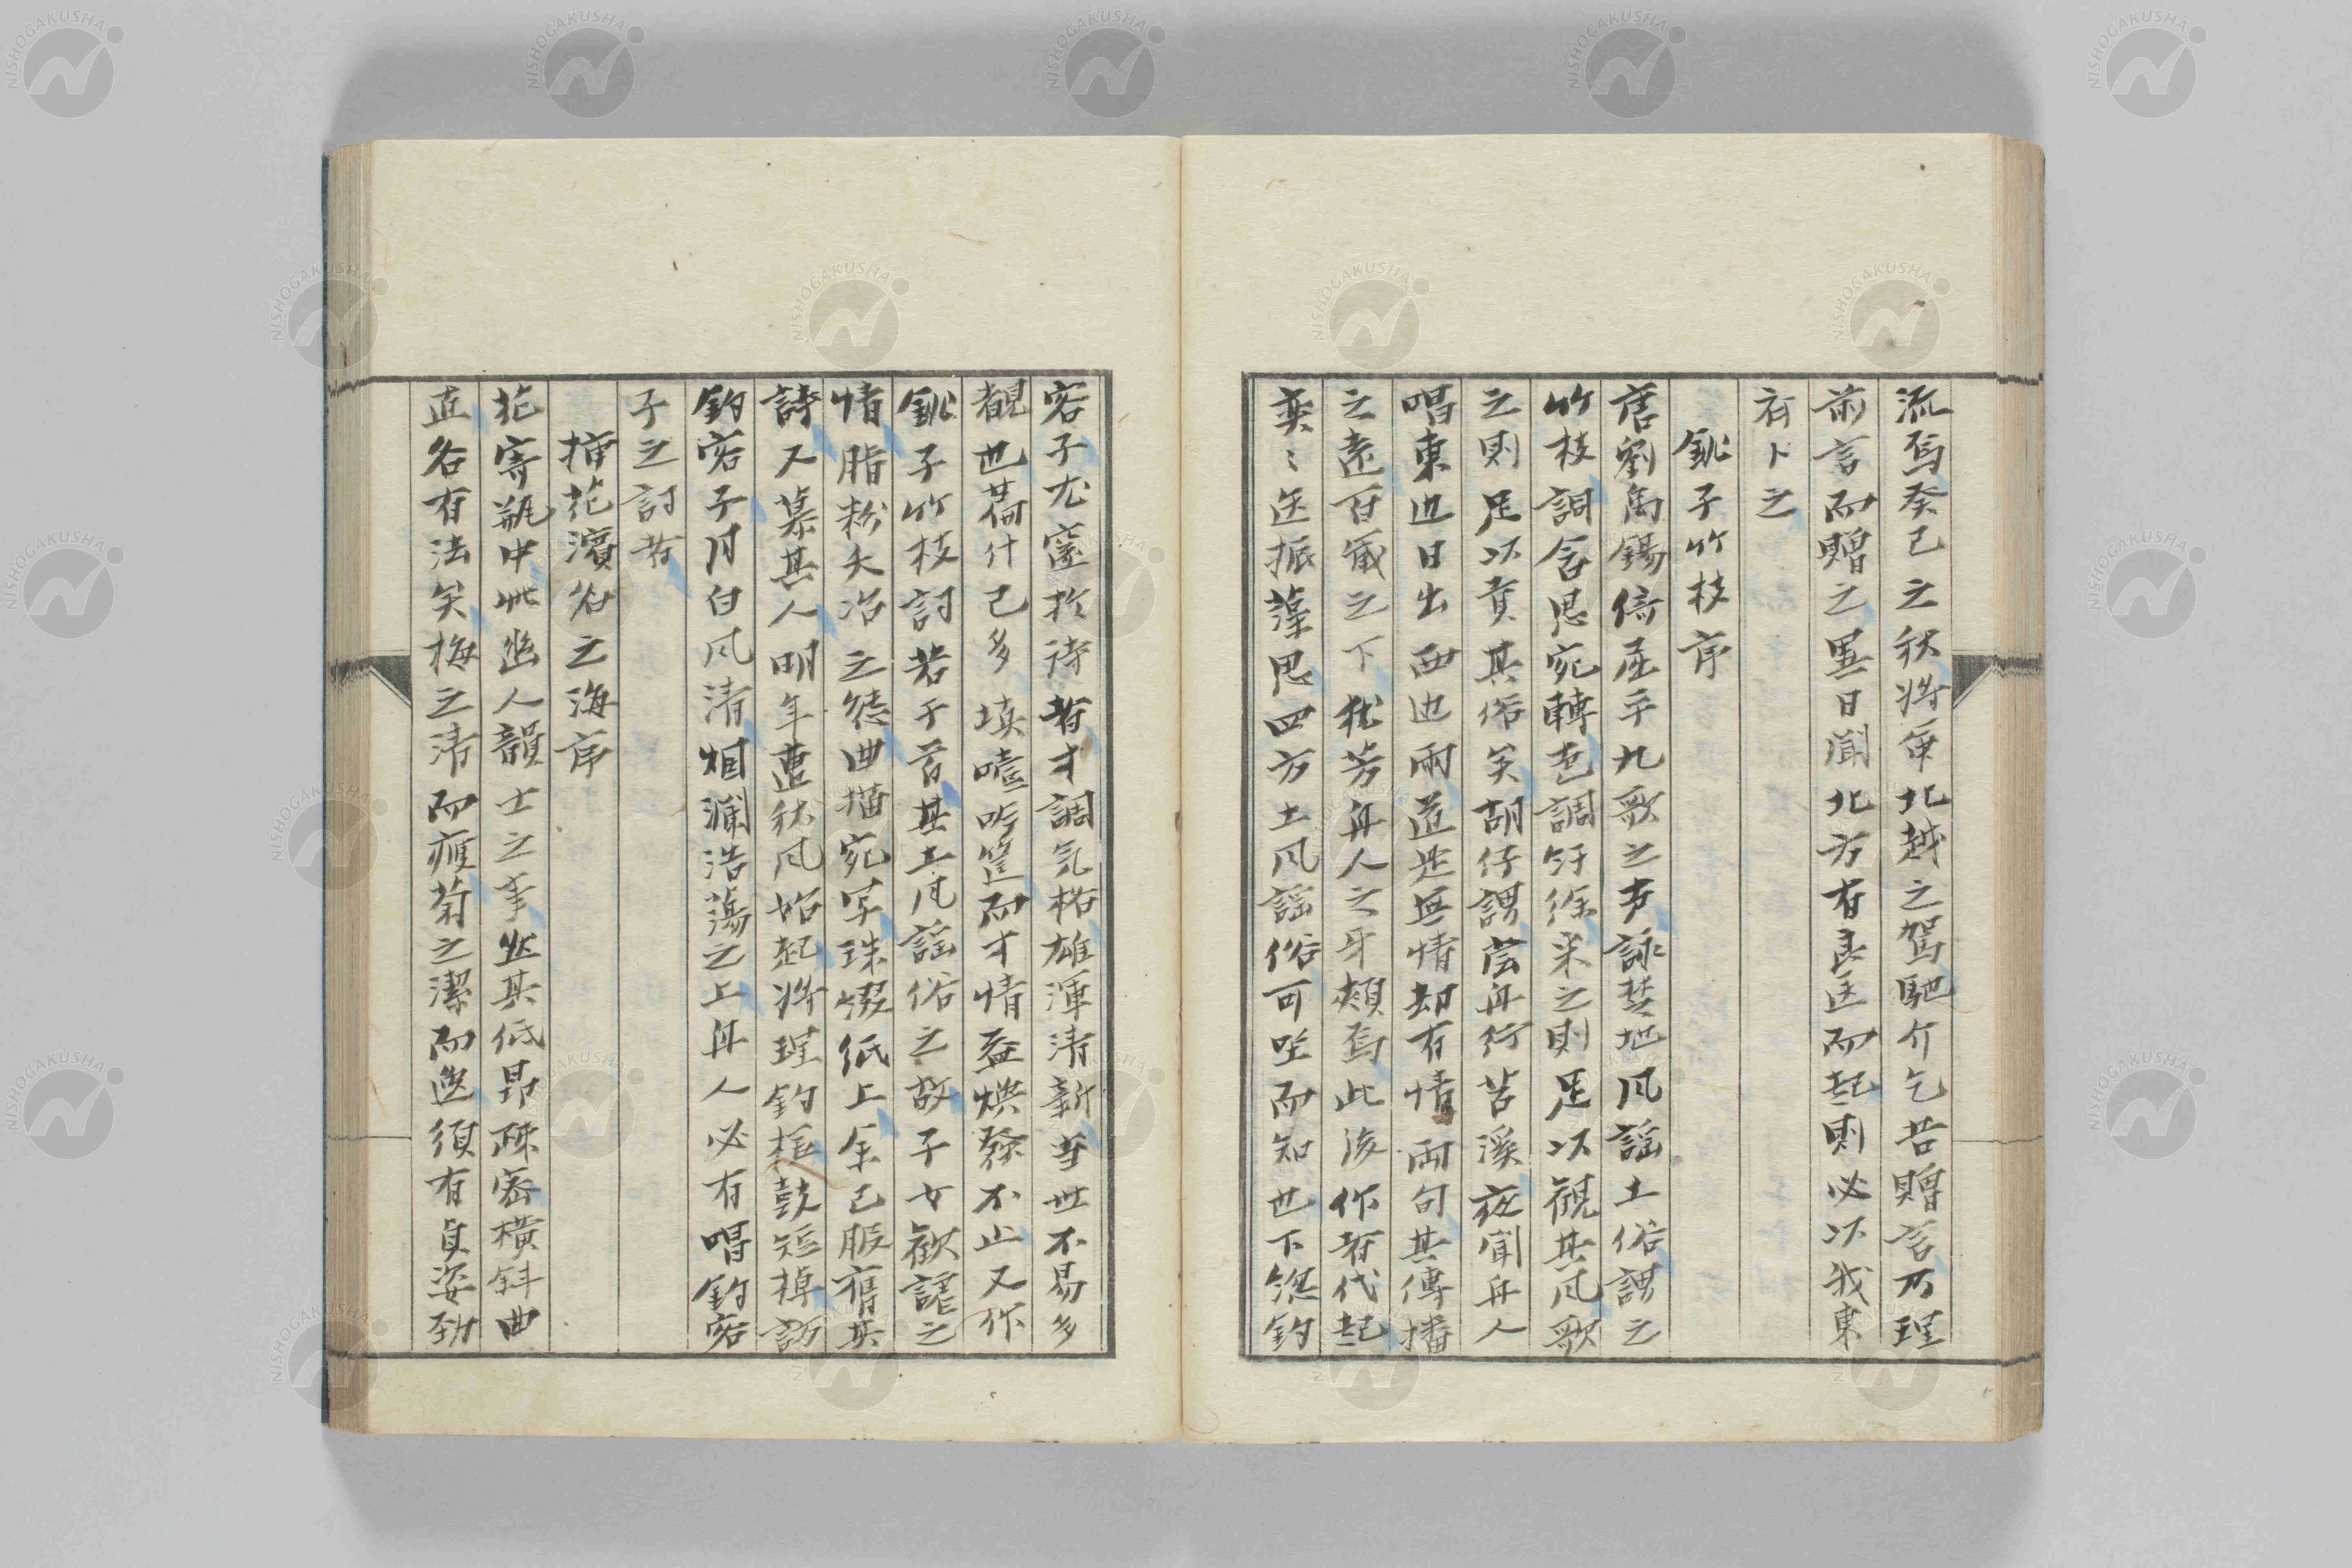 流焉癸己之秋将命北越之駕馳介乞苦贈言乃理
前言而贈之異日聞北方有良医而起則必以我東
有卜之
銚子竹枝序
唐劉禹錫倚屈平九歌之老詠楚地風謡土俗謂之
竹枝詞含思宛轉老調紆徐采之則足以観其風歌
之則足以賁其俗矣胡仔謂嘗舟行苕溪夜聞舟人
唱東辺日出西辺雨道是無情却有情両句其傳播
之遠百歳之下猶芳舟人之牙頬焉此後作者代起
奕〻迭振藻思四方土風謡俗可坐而知也下総釣
客子尤富於詩者才調気格雄渾清新当世不易多
覩也葛什已多填噎吟筐而才情益煥発不止又作
銚子竹枝詞若干首其土風謡俗之故子女歓謔之
情脂粉夭冶之態曲描宛写珠綴紙上余已服旧其
詩又慕其人明年鷹秋風始起将理釣槎鼓短棹訪
釣客子月白風清烟瀾浩蕩之上舟人必有唱釣客
子之詞者
挿花濱名之海序
花寄瓶中此幽人韻士之事然其低昂疎密横斜曲
直各有法矣梅之清而痩菊之潔而逸須有貞姿勁
NISHOGAKUSHA